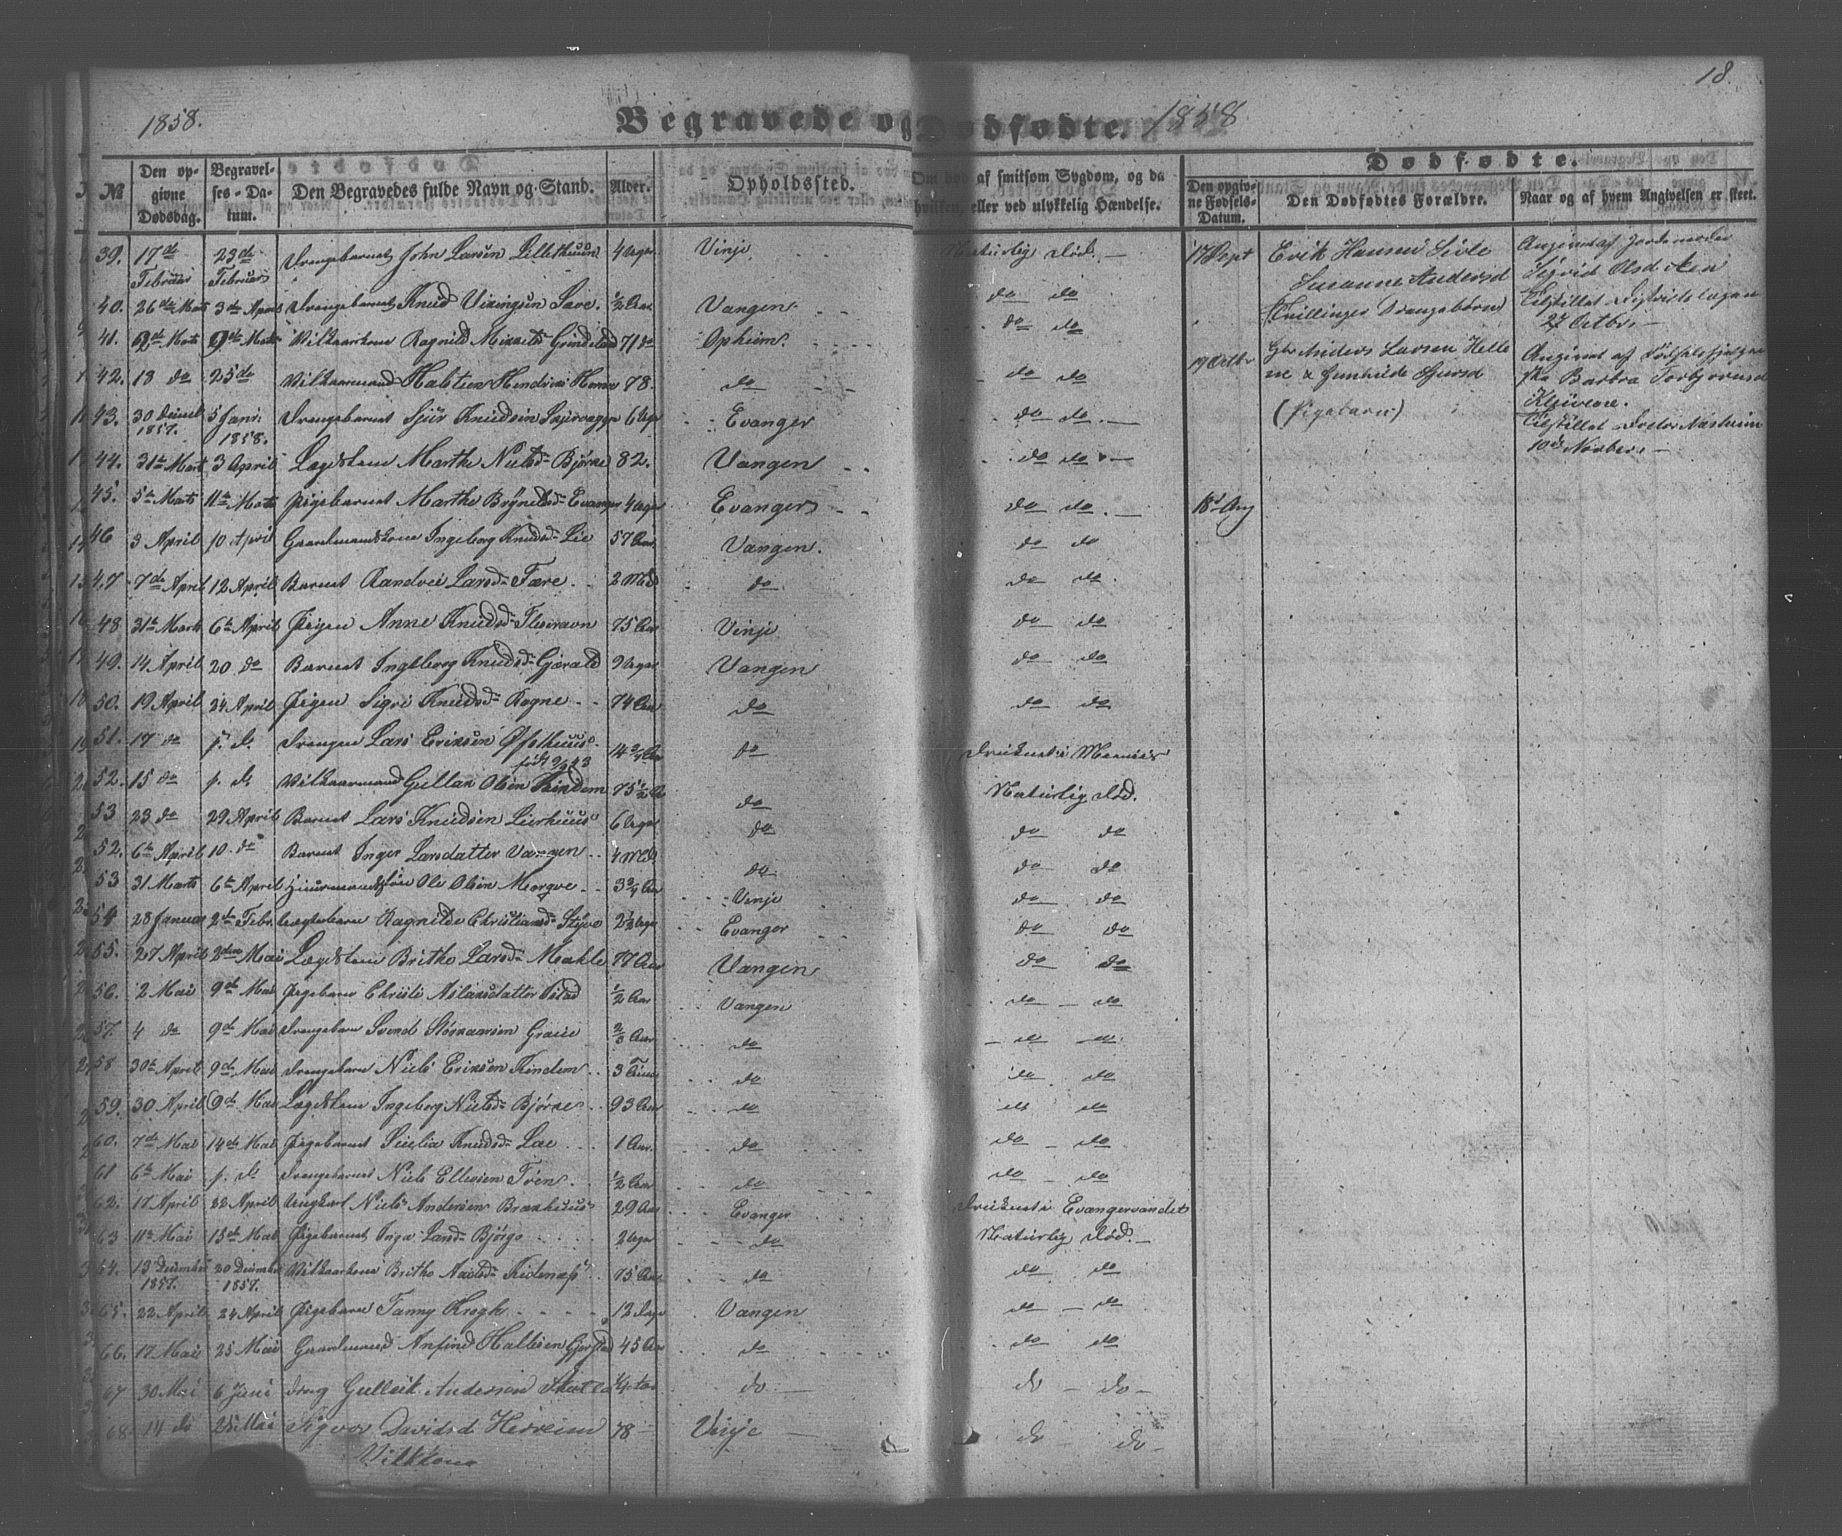 18.
1858. Begravede og Dødfødte. 1858
Dødfødte.
№ Den opgivne Dødsdag. Begravelses-Datum. Den Begravedes fulde Navn og Stand. Alder. Opholdssted. Om død af smitsom Sygdom, og da hvilken, eller ved ulykkelig Hændelse. Den opgivne Fødsels-Datum. Den Dødfødtes Forældre. Naar og af hvem Angivelsen er skeet.
39. 17de Februar 23de Februar Drengebarnet John Larsen Lillethuun 4 Uger Vinje Naturlig Død. —
40. 26de Marts 3de April Drengebarnet Knud Vikingsen Save. ½ Aar Vangen do do
41. 2de Marts 9de Marts Vilkaarkone Ragnild Mikkelsd. Grindeland 71 do Opheim do do
42. 18 do 25de Vilkaarmand Halsten 78. do do do
43. 30 Decmb 1857. 5 Janr. 1858. Drengebarnet Sjur Knudsen 6 Uger Evanger do do. —
44. 31te Mart 3 April Lægdslem Marthe Nielsd. Bjørke 82. Vangen do do. —
45. 5te Marts 11te Marts Pigebarnet Martha Brynildsd. Evanger 4 Uger Evanger do do. —
46 3 April 10 April Gaardmandskone Ingeborg Knudsd. Lie 57 Aar Vangen. do do
47 7de April 12 April Barnet Randvei Larsd. Fære. 2 Md do. do do.
48 31te Marts 6te April Pigen Anne Knudsd. 75 Aar Vinje do do
49. 14 April 20 do Barnet Ingeborg Knudsd. Gjerald 9 Uger Vangen do do
50. 19 April 24 April Pigen Sigri Knudsd. Rogne 74 Aar do do do
51. 17 do p. d. Drengen Lars Eriksen Øfsthuus. 14 ¾ Aar do
født 9/ 43
52. 15 do p. d. Vilkaarmand Gullak Olsen Kindem 75 ½ A do Naturlig Død.
53 23 do 29 April Barnet Lars Knudsen Lirhuus 6 Uger do do do
52. 6te April 10 do Barnet Inger Larsdatter Vangen 4 Md. do do do
53 31 Marts 6te April Huusmandssøn Ole Olsen Mørkve 3 ¾ Aar Vinje do do
54 28 Januar 2de Febr. Ragnilde Christiansd. 2½ Uger Evanger do do
55. 27 April 2den Mai Lægdslem Britha Larsd. Møkle 77 Aar Vangen do do
56. 2 Mai 9de Mai Pigebarn Christi Aslaksdatter ½ Aar Vangen do — do
57. 4 do 9de Mai Drengebarn Svend Størkaarsen Graue ⅔ Aar do do do.
58 30te April 9de Mai Drengebarn Niels Eriksen Kindem 3 Timer do do do
59. 30 April 9de Mai Lægdslem Ingeborg Nielsd. Bjørke 93 Aar do do do
60. 7de Mai 14de Mai Pigebarnet Sicelia Knudsd. 1 Aar. do do — do
61 6te Mai p. d. Drengebarnet Niels Ellevsen Tven ½ Aar do do — do
62. 17 April 22 April Ungkarl Niels Andersen Brækhuus 29 Aar Evanger Druknet i Evangervandet
63 11te Mai 15de Mai Pigebarnet Inga Larsd. Bjørgo 2 Uger do Naturlig Død. —
64. 13 December 1857. 20 December 1857. Vilkaarkone Britha 75 Aar do do do
65. 22 April 24 April Pigebarn Fanny Krogh 12 Dage Vangen do — do
66. 17 Mai 25 Mai Gaardmand Anfind Halles­en Gjerstad 45 Aar do do do
67 30 Mai 6 Juni Dreng Gulleik Anderson ¼ Aar do do — do —
68 14 do 25 Mai Sigvor Davidsd Herreim 78 — Vinje — do — do —
Vilkkone
17 Sept Erik Hansen Sivle
Susanne Andersd
(Tvillinger Drengebørn)
Angivet af Jordemoder
Sigrid Olsd
27 Octbr. —
19 Octbr Gbr Anders Larsen Helle
ne & Gunhilde Sjursd
(Pigebarn)
Angivet af
Barbra Torbjørnsd
10de Novber. —
18d Aug